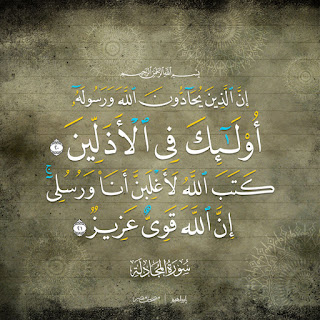 بسم الله الرحمن الرحيم
إِنَّ ٱلَّذِينَ يُحَآدُّونَ ٱللَّهَ وَرَسُولَهُۥٓ
أُو۟لَـٰٓئِكَ فِى ٱلْأَذَلِّينَ ٢٠
كَتَبَ ٱللَّهُ لَأَغْلِبَنَّ أَنَا۠ وَرُسُلِىٓ ۚ
إِنَّ ٱللَّهَ قَوِىٌّ عَزِيزٌ ٢١
سُورَةُ الْمُجَادلَة